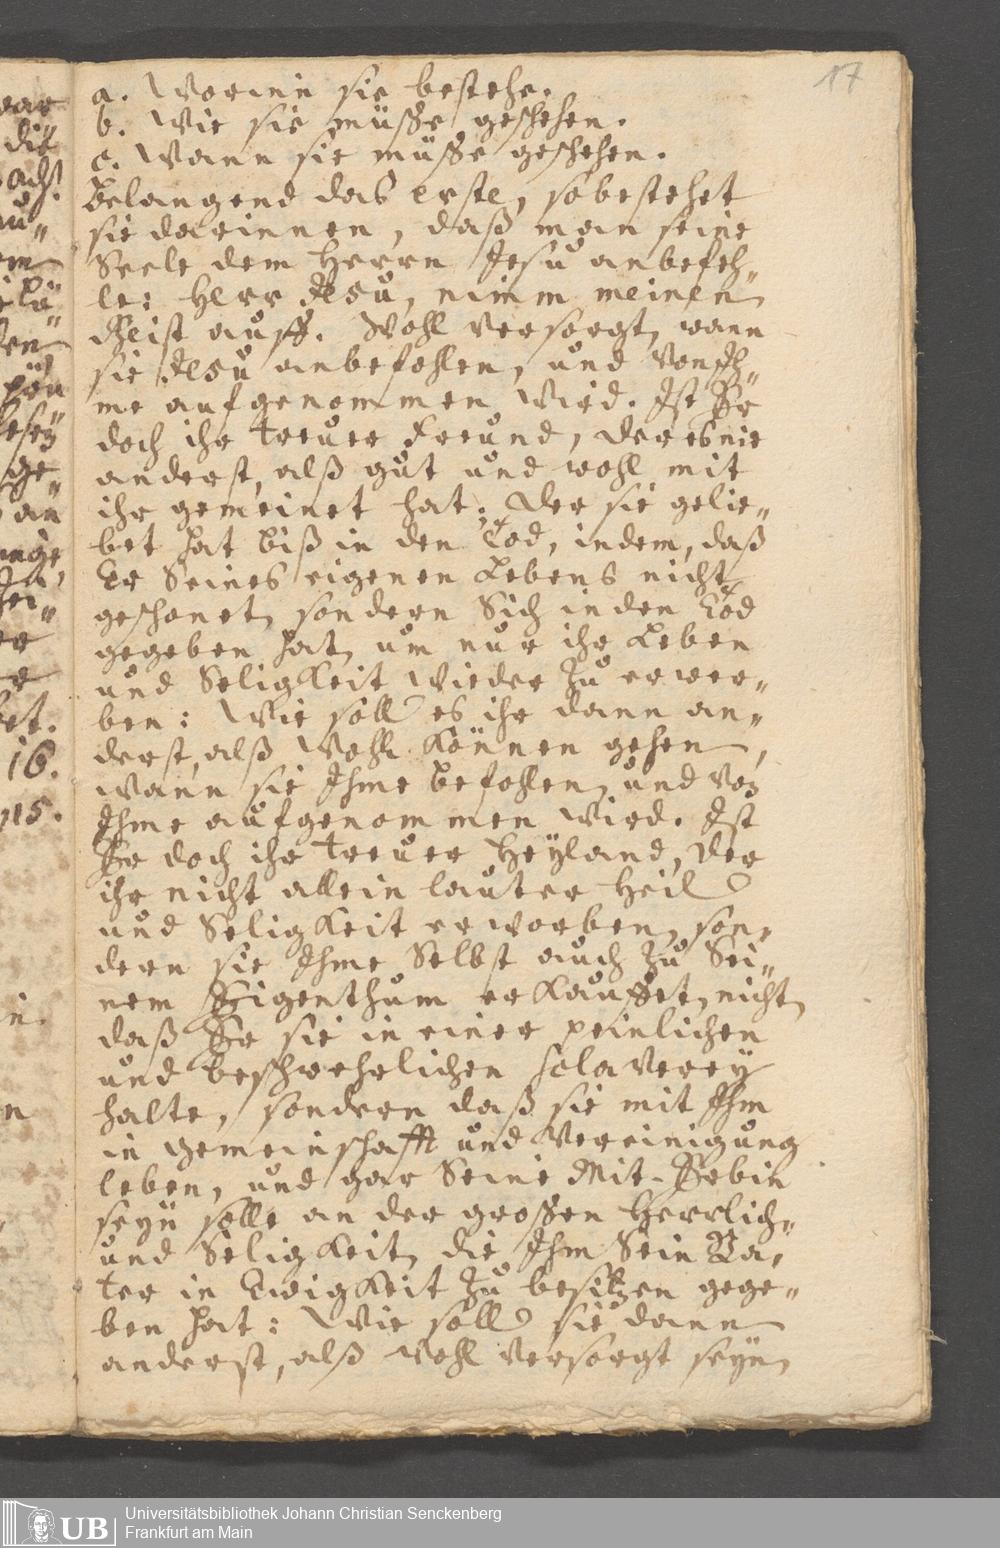 17
a. Worinn sie bestehe.
b. Wie sie müsse geschehen.
c. Wann sie müsse geschehen.
Belangend das erste, so bestehet
sie darinnen, daß man seine
Seele dem Herrn Jesu anbefeh„
le: Herr Jesu, nimm meinen
Geist auff. Wohl versorgt, wann
sie Jesu anbefohlen, und von Ih„
me aufgenommen wird. Ist Er
doch ihr treuer Freund, der es nie
anderst, alß gut und wohl mit
ihr gemeinet hat; der sie gelie„
bet hat biß in den Tod, indem, daß
Er Seines eigenen Lebens nicht
geschonet, sondern Sich in den Tod
gegeben hat, um nur ihr Leben
und Seligkeit wieder zu erwer„
ben: Wie soll es ihr dann an„
derst, alß wohl können gehen,
wann sie Ihme befohlen, und von
Ihme aufgenommen wird. Ist
Er doch ihr treuer Heyland, der
ihr nicht allein lauter Heil
und Seligkeit erworben, son„
dern sie Ihme Selbst auch zu Sei„
nem Eigenthum erkauffet, nicht,
daß Er sie in einer peinlichen
und beschwehrlichen Sclaverey
halte, sondern daß sie mit Ihm
in Gemeinschafft und Vereinigung
leben, und gar Seine Mit-Erbin
seyn solle an der grossen Herrlich„
und Seligkeit, die Ihm Sein Va„
ter in Ewigkeit zu besitzen gege„
ben hat: Wie soll sie dann
anderst, alß wohl versorgt seyn,
die
16.
15.
Universitätsbibliothek Johann Christian Senckenberg
Frankfurt am Main
UB